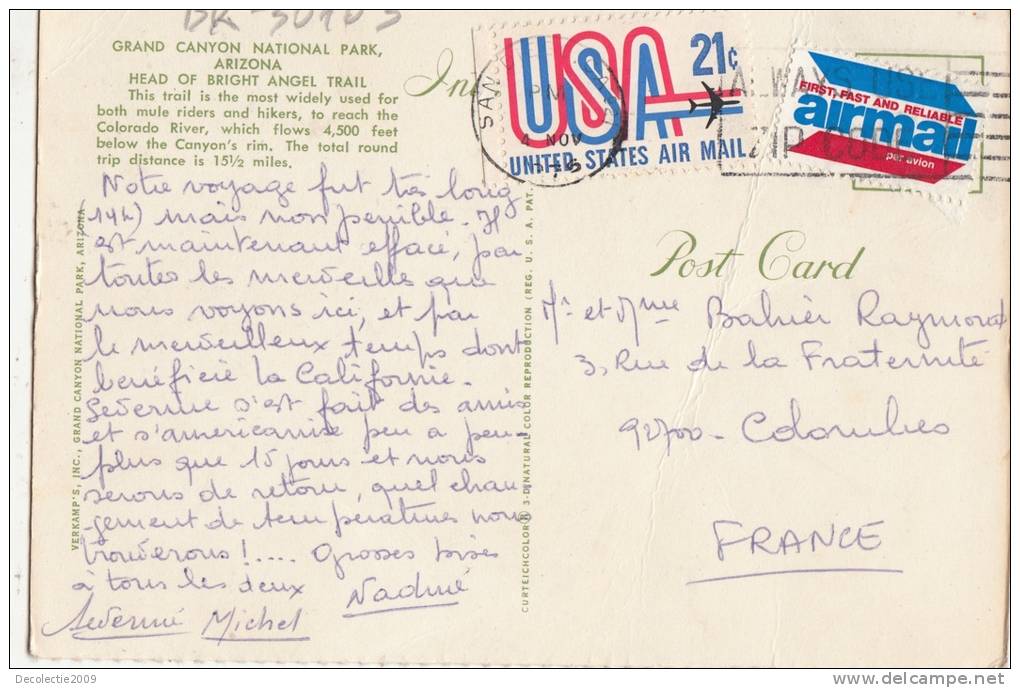 BK-30903
GRAND CANYON NATIONAL PARK,
ARIZONA
HEAD OF BRIGHT ANGEL TRAIL
This trail is the most widely used for
both mule riders and hikers, to reach the
Colorado River, which flows 4,500 feet
below the Canyon's rim. The total round
trip distance is 15½ miles.
Notre voyage fut très long
14h) mais non penible. Il
est maintenant effacé, par
toutes les merveille que
nous voyons ici, et par
le merveilleux temps dont
benéficie la Californie.
Severine s'est fait des amis
et s'americanise peu a peu-
plus que 15 jours et nous
serons de retour, quel chan-
gement de temperatures nous
trouverons !.... Grosses bises
à tous les deux Nadine
Severine Michel
VERKAMP'S, INC., GRAND CANYON NATIONAL PARK, ARIZONA
CURTEICHCOLOR® 3-D NATURAL COLOR REPRODUCTION (REG. U. S. A. PAT.
USA 21¢
UNITED STATES AIR MAIL
SAN
PM
4 NOV
ALWAYS USE
ZIP CODE
FIRST, FAST AND RELIABLE
airmail
par avion
Post Card
Mr et Mme Bahier Raymond
3, Rue de la Fraternité
92700 - Colombes
FRANCE
Decolectie2009
www.delcampe.net